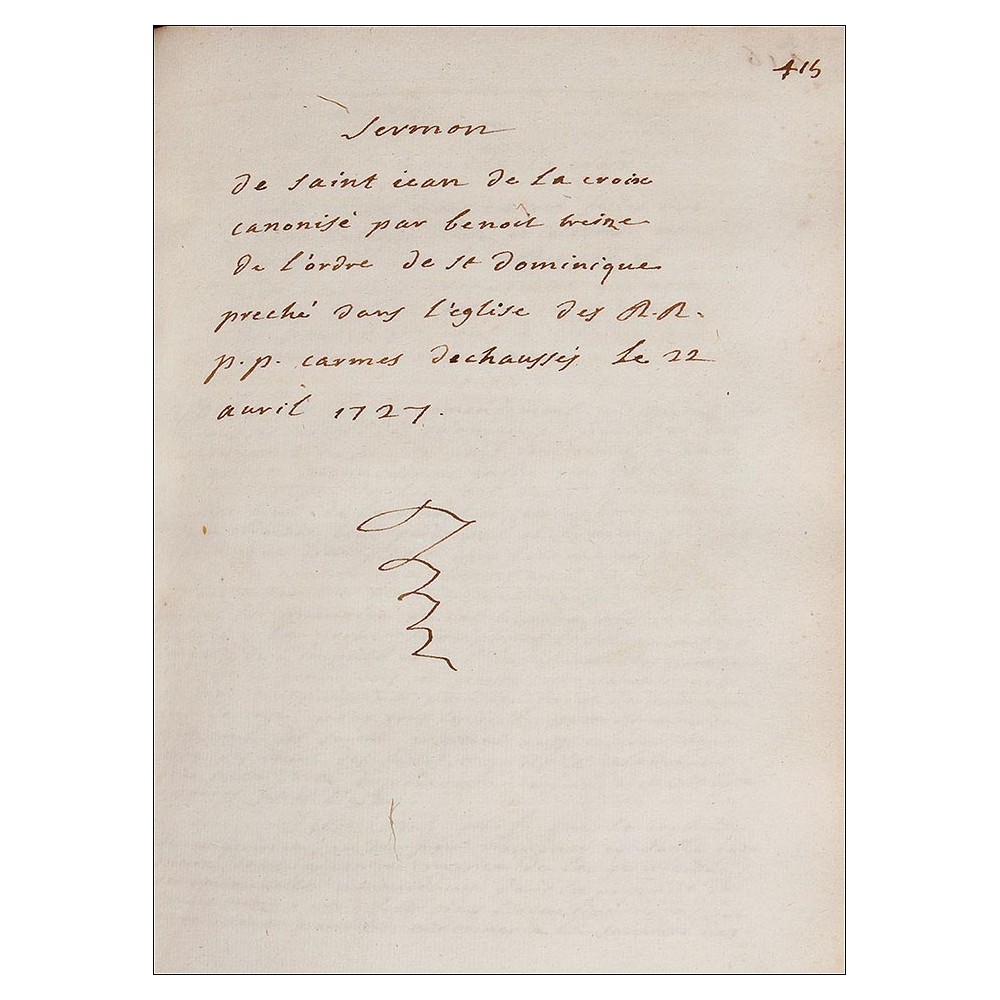 415
Sermon
de saint iean de la croix
canonisé par benoit treize
de l'ordre de st dominique
preché dans l'église des R.R.
p.p. carmes dechaussés le 22
avril 1727.